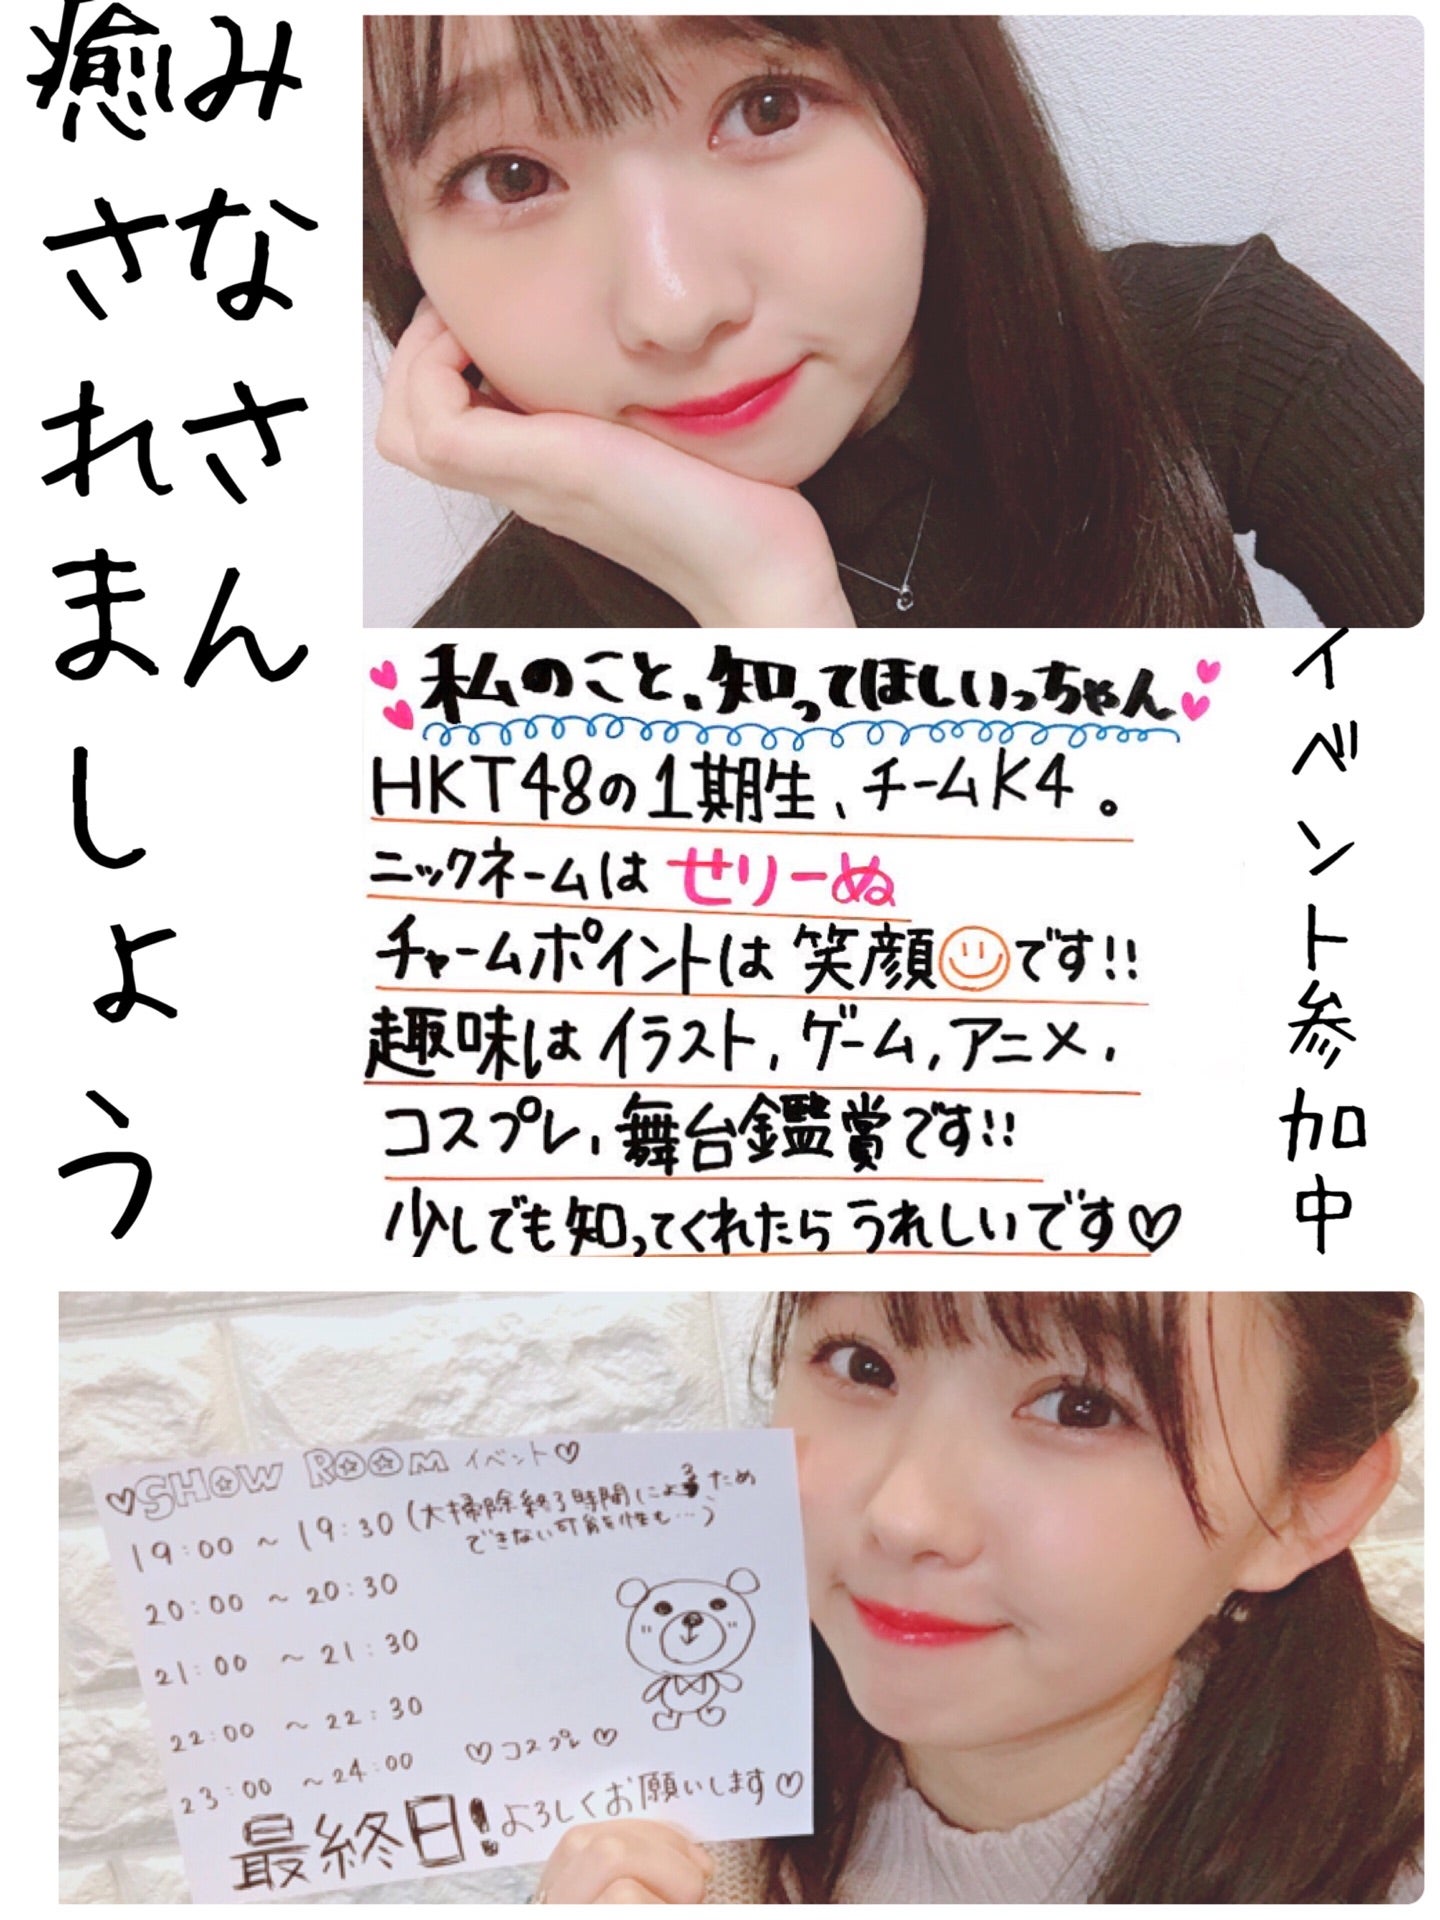 みなさん
癒されましょう
私のこと、知ってほしいっちゃん
HKT48の1期生、チームK4。
ニックネームはせりーぬ
チャームポイントは笑顔です!!
趣味はイラスト,ゲーム,アニメ,
コスプレ,舞台鑑賞です!!
少しでも知ってくれたらうれしいです♡
イベント参加中
♡SHOW ROOM イベント♡
19:00 ~ 19:30 (大掃除終了時間によるため
できない可能性も…)
20:00 ~ 20:30
21:00 ~ 21:30
22:00 ~ 22:30
23:00 ~24:00 ♡コスプレ♡
最終日!よろしくお願いします♡